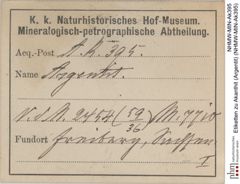 K. k. Naturhistorisches Hof-Museum.
Mineralogisch-petrographische Abtheilung.
Acq.-Post A.k. 395.
Name Argentit.
V.S.N. 2454 (59/36) M. 7710
Fundort Freiberg, Sachsen
I
NHMW-MIN-Ak395
Etiketten zu Akanthit (Argentit) (NHMW-MIN-Ak395)
nhm